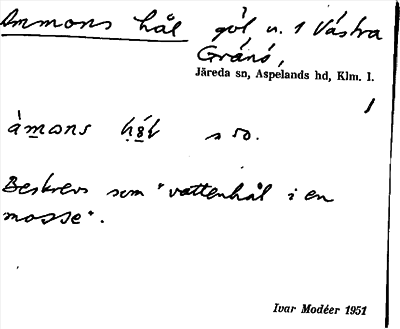 Ammons hål göl, n. 1 Västra
Gränö,
Järeda sn, Aspelands hd, Klm. l.
1
àmons hól s 50.
Beskrevs som "vattenhål i en
mosse".
Ivar Modéer 1951